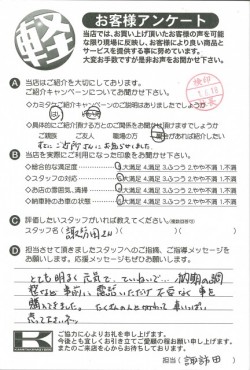 軽
お客様アンケート
当店では、お買い上げ頂いたお客様の声を可能
な限り現場に反映し、お客様により良い商品と
サービスを提供する事に努めています。
大変お手数ですが是非お声をお聞かせ下さい。
A 当店はご紹介を大切にしております。
ご紹介キャンペーンについてお聞かせ下さい
◇カミタケご紹介キャンペーンのご説明はありましたでしょうか
はい いいえ
◇具体的にご紹介頂ける方との関係をお聞かせ頂けますでしょうか
ご親類 ご友人 職場の方
B 当店を実際にご利用になった印象をお聞かせ下さい。
・総合的な満足度 5.大満足 4.満足 3.ふつう 2.やや不満 1.不満
・スタッフの対応 5.大満足 4.満足 3.ふつう 2.やや不満 1.不満
・お店の雰囲気、清掃 5.大満足 4.満足 3.ふつう 2.やや不満 1.不満
・納車時のお車の状態 5.大満足 4.満足 3.ふつう 2.やや不満 1.不満
C 辞退したいスタッフがいれば教えてください。
スタッフ名( 諏訪田さん )
D 担当させて頂きましたスタッフへのご指摘、ご指導メッセージを
お願いします。応援メッセージもぜひお願いします。
とても明るく元気で、ていねいで…納期の調
整など事前に電話いただけ 不安なく車を
購入できました。たくさんの人に
K
ご協力に心よりお礼を申し上げます。
今後とも宜しくお引き立てご愛顧の程お願い申し上げます。
またのご来店を心からお待ちしております。
担当( 諏訪田 )